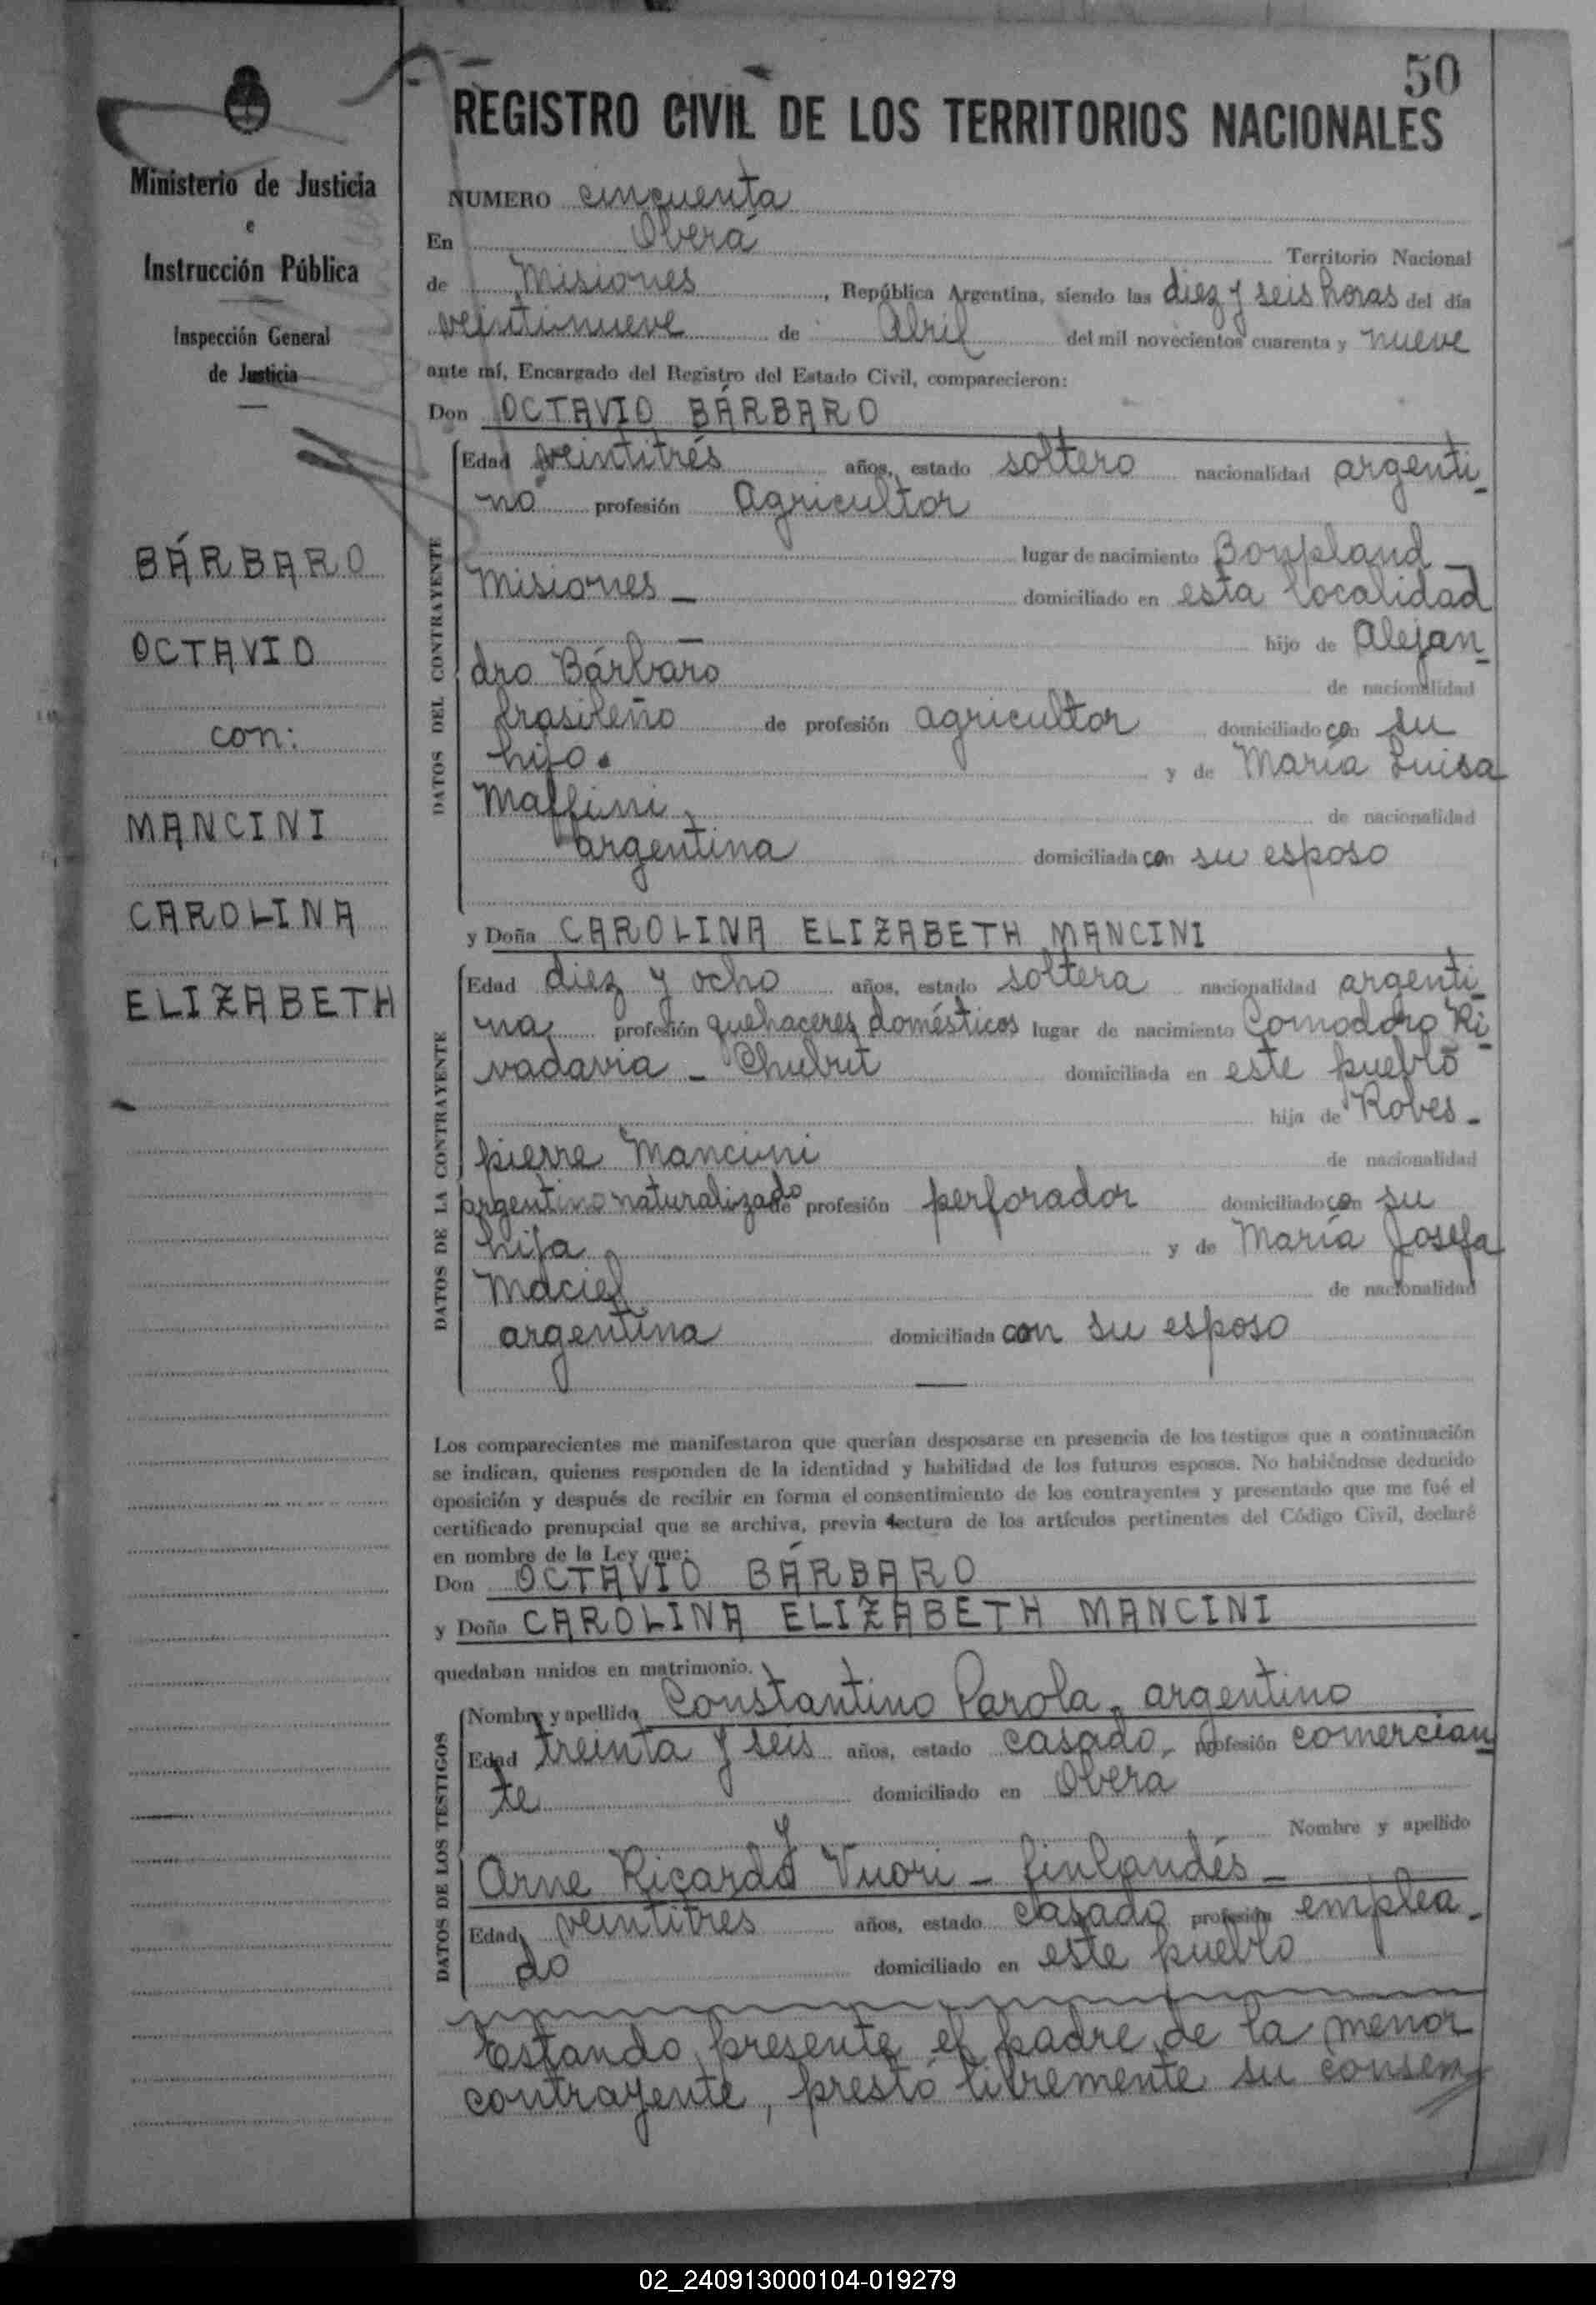 50
REGISTRO CIVIL DE LOS TERRITORIOS NACIONALES
Ministerio de Justicia
e
Instrucción Pública
Inspección General
de Justicia
BÁRBARO
OCTAVIO
con:
MANCINI
CAROLINA
ELIZABETH
NUMERO cincuenta
En Oberá Territorio Nacional
de Misiones, República Argentina, siendo las diez y seis horas del día
veintinueve de Abril del mil novecientos cuarenta y nueve
ante mí, Encargado del Registro del Estado Civil, comparecieron:
Don OCTAVIO BÁRBARO
DATOS DEL CONTRAYENTE
Edad veintitrés años, estado soltero nacionalidad argenti-
no profesión agricultor
lugar de nacimiento Bonpland
Misiones - domiciliado en esta localidad
- hijo de Alejan-
dro Bárbaro de nacionalidad
brasileño de profesión agricultor domiciliado con su
hijo. y de María Luisa
Maffini, de nacionalidad
argentina domiciliada con su esposo
y Doña CAROLINA ELIZABETH MANCINI
DATOS DE LA CONTRAYENTE
Edad diez y ocho años, estado soltera nacionalidad argenti-
na profesión quehaceres domésticos lugar de nacimiento Comodoro Ri-
vadavia - Chubut domiciliada en este pueblo
hija de Robes-
pierre Mancini de nacionalidad
argentino naturalizado de profesión perforador domiciliado con su
hija y de María Josefa
Maciel de nacionalidad
argentina domiciliada con su esposo
Los comparecientes me manifestaron que querían desposarse en presencia de los testigos que a continuación
se indican, quienes responden de la identidad y habilidad de los futuros esposos. No habiéndose deducido
oposición y después de recibir en forma el consentimiento de los contrayentes y presentado que me fué el
certificado prenupcial que se archiva, previa lectura de los artículos pertinentes del Código Civil, declaré
en nombre de la Ley que:
Don OCTAVIO BÁRBARO
y Doña CAROLINA ELIZABETH MANCINI
quedaban unidos en matrimonio.
DATOS DE LOS TESTIGOS
Nombre y apellido Constantino Parola - argentino
Edad treinta y seis años, estado casado - profesión comercian-
te domiciliado en Oberá
y Nombre y apellido
Arne Ricardo Vuori - finlandés -
Edad veintitres años, estado casado profesión emplea-
do domiciliado en este pueblo
Estando presente el padre de la menor
contrayente, prestó libremente su consen-
02_240913000104-019279